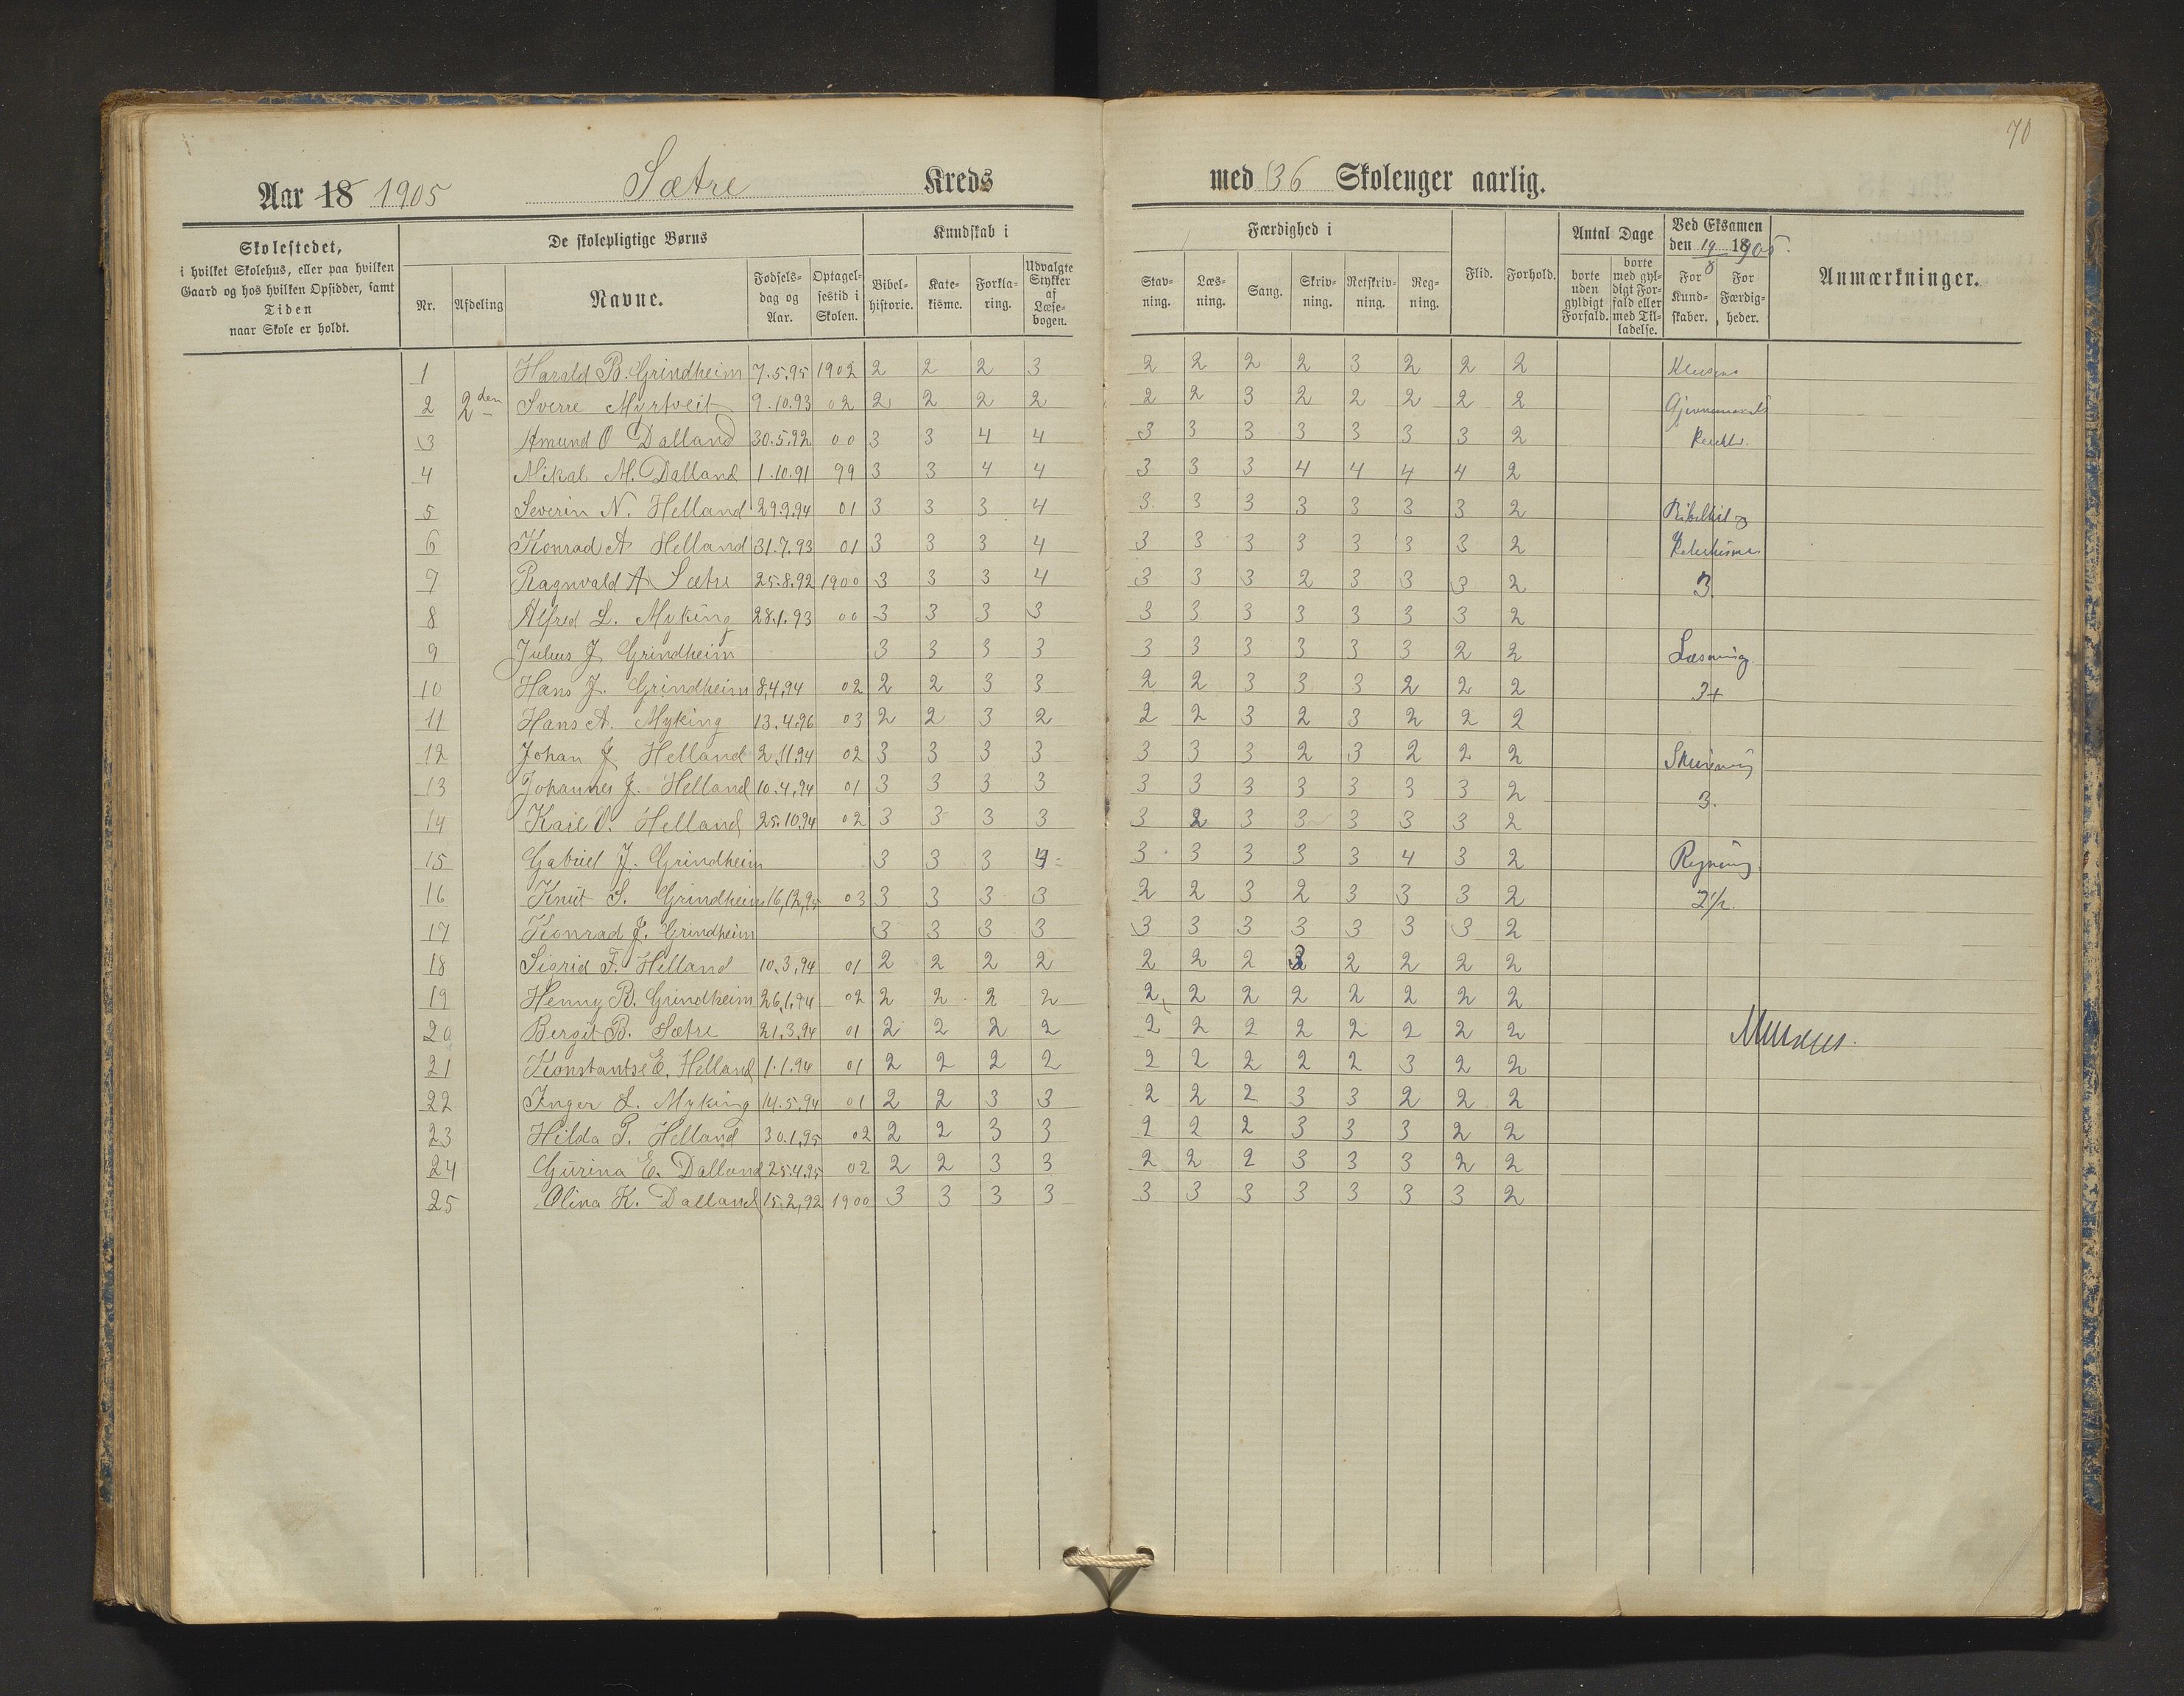 70
Aar 18 1905 Sætre Kreds med 36 Skoleuger aarlig.
Skolestedet,
i hvilket Skolehus, eller paa hvilken
Gaard og hos hvilken Opsidder, samt
Tiden
naar Skole er holdt.
De skolepligtige Børns
Nr. Afdeling Navne. Fødsels-dag og Aar. Optagel-sestid i Skolen.
Kundskab i
Bibel-historie. Kate-kisme. Forkla-ring. Udvalgte Stykker af Læse-bogen.
Færdighed i
Stav-ning. Læs-ning. Sang. Skriv-ning. Retskriv-ning. Reg-ning. Flid. Forhold.
Antal Dage
borte uden gyldigt Forfald. borte med gyl-digt For-fald eller med Til-ladelse.
Ved Eksamen
den 19/8 1905.
For Kund-skaber. For Færdig-heder.
Anmærkninger.
1 Harald B. Grindheim 7.5.95 1902 2 2 2 3 2 2 2 2 3 2 2 2 Klassens
2 2den Sverre Myrtveit 9.10.93 02 2 2 2 2 2 2 3 2 2 2 2 2
3 Amund O Dalland 30.5.92 00 3 3 4 4 3 3 3 3 3 3 3 2
4 Mikal M. Dalland 1.10.91 99 3 3 4 4 3 3 3 4 4 4 4 2
5 Severin N. Helland 29.9.94 01 3 3 3 4 3 3 3 3 3 3 3 2
6 Konrad A Helland 31.7.93 01 3 3 3 4 3 3 3 3 3 3 3 2
7 Ragnvald A Sætre 25.8.92 1900 3 3 3 4 3 3 3 2 3 3 3 2 3.
8 Alfred L. Myking 28.1.93 00 3 3 3 3 3 3 3 3 3 3 3 2
9 Julius J Grindheim 3 3 3 3 3 3 3 3 3 3 2 2 Læsning
10 Hans J. Grindheim 8,4,94 02 2 2 3 3 2 2 3 3 3 2 2 2 3+
11 Hans A. Myking 13.4.96 03 2 2 3 2 2 2 3 2 3 2 2 2
12 Johan J Helland 2.11.94 02 3 3 3 3 3 3 3 2 3 2 2 2 Skrivning
13 Johannes J. Helland 10.4,94 01 3 3 3 3 3 3 3 3 3 3 3 2 3.
14 Karl O. Helland 25.10.94 02 3 3 3 3 3 2 3 3 3 3 3 2
15 Gabriel J. Grindheim 3 3 3 4 3 3 3 3 3 4 3 2 Regning
16 Knut S. Grindheim 16,12,95 03 3 3 3 3 2 2 3 2 3 3 3 2 2½.
17 Konrad J. Grindheim 3 3 3 3 3 3 3 3 3 3 3 2
18 Sigrid F. Helland 10.3,94 01 2 2 2 2 2 2 2 3 2 2 2 2
19 Henny B. Grindheim 26,1.94 02 2 2 2 2 2 2 2 2 2 2 2 2
20 Bergit B. Sætre 21.3.94 01 2 2 2 2 2 2 2 2 2 2 2 2
21 Konstantse E. Helland 1.1.94 01 2 2 2 2 2 2 2 2 2 3 2 2
22 Inger L. Myking 14.5,94 01 2 2 3 3 2 2 2 3 3 2 2 2
23 Hilda P. Helland 30.1,95 02 2 2 3 3 2 2 2 3 3 3 2 2
24 Gurina E. Dalland 25.4.95 02 2 2 3 3 2 2 2 3 3 3 2 2
25 Olina K. Dalland 15.2,92 1900 3 3 3 3 3 3 3 3 3 3 3 2